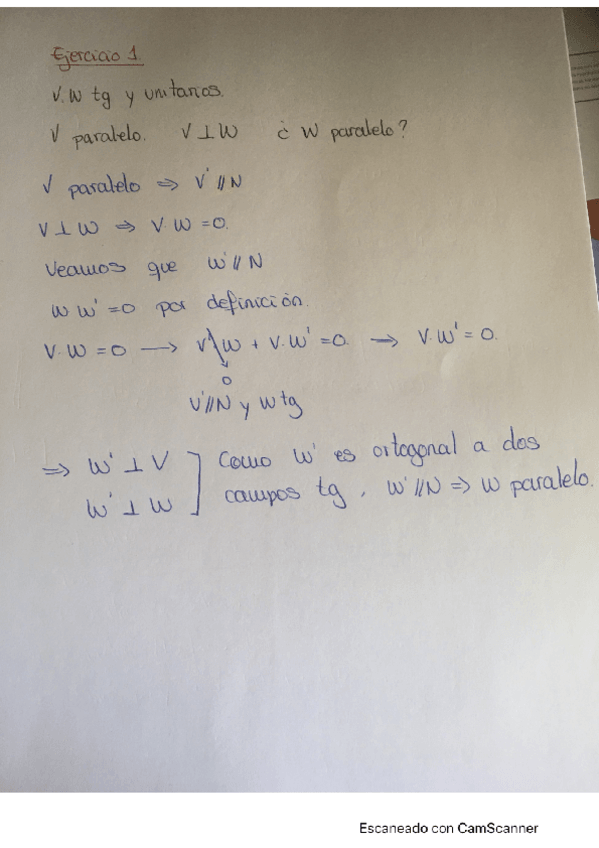 Ejercicio 1.
V, W tg y unitarios.
V paralelo. V ⊥ W ¿ W paralelo?
V paralelo ⇒ V' // N
V ⊥ W ⇒ V·W = 0.
Veamos que W' // N
W W' = 0 por definición.
V·W = 0 → V'W + V·W' = 0 → V·W' = 0.
0
V' // N y W tg
⇒ W' ⊥ V ] Como W' es ortogonal a dos
W' ⊥ W ] campos tg, W' // N ⇒ W paralelo.
Escaneado con CamScanner